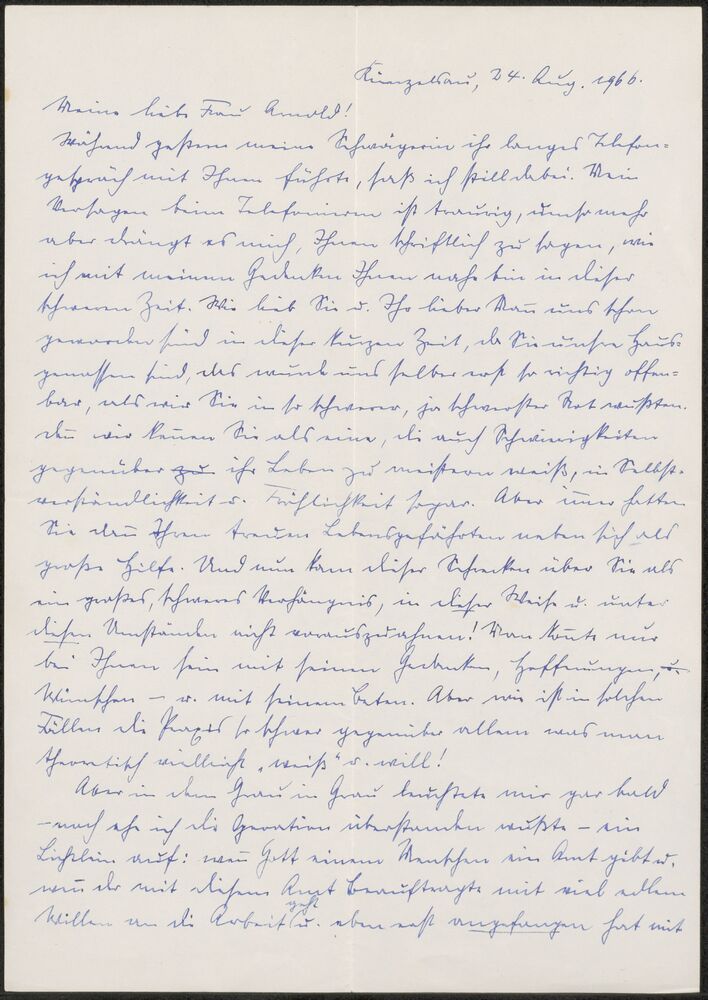 Künzelsau, 24. Aug. 1966.
Meine liebe Frau Arnold!
Während gestern meine Schwägerin ihr langes Telefon=
gespräch mit Ihnen führte, saß ich still dabei. Mein
Versagen beim Telefonieren ist traurig, umso mehr
aber drängt es mich, Ihnen schriftlich zu sagen, wie
ich mit meinen Gedanken Ihnen nahe bin in dieser
schweren Zeit. Wie lieb Sie u. Ihr lieber Mann uns schon
geworden sind in dieser kurzen Zeit, da Sie unsre Haus=
genossen sind, das wurde uns selber erst so richtig offen=
bar, als wir Sie in so schwerer, ja schwerster Not wußten.
Denn wir kennen Sie als eine, die auch Schwierigkeiten
gegenüber zu ihr Leben zu meistern weiß, in Selbst=
verständlichkeit u. Fröhlichkeit sogar. Aber immer hatten
Sie dann Ihren treuen Lebensgefährten neben sich als
große Hilfe. Und nun kam dieser Schrecken über Sie als
ein großes, schweres Verhängnis, in dieser Weise u. unter
diesen Umständen nicht vorauszuahnen! Man konnte nur
bei Ihnen sein mit seinen Gedanken, Hoffnungen, u.
Wünschen – u. mit seinem Beten. Aber wie ist in solchen
Fällen die Praxis so schwer gegenüber allem was man
theoretisch vielleicht „weiß" u. will!
Aber in dem Grau in Grau leuchtete mir gar bald
– noch ehe ich die Operation überstanden wußte – ein
Lichtlein auf: wenn Gott einem Menschen ein Amt gibt u.
wenn der mit diesem Amt Beauftragte mit viel edlem
Willen an die Arbeit geht u. eben erst angefangen hat mit